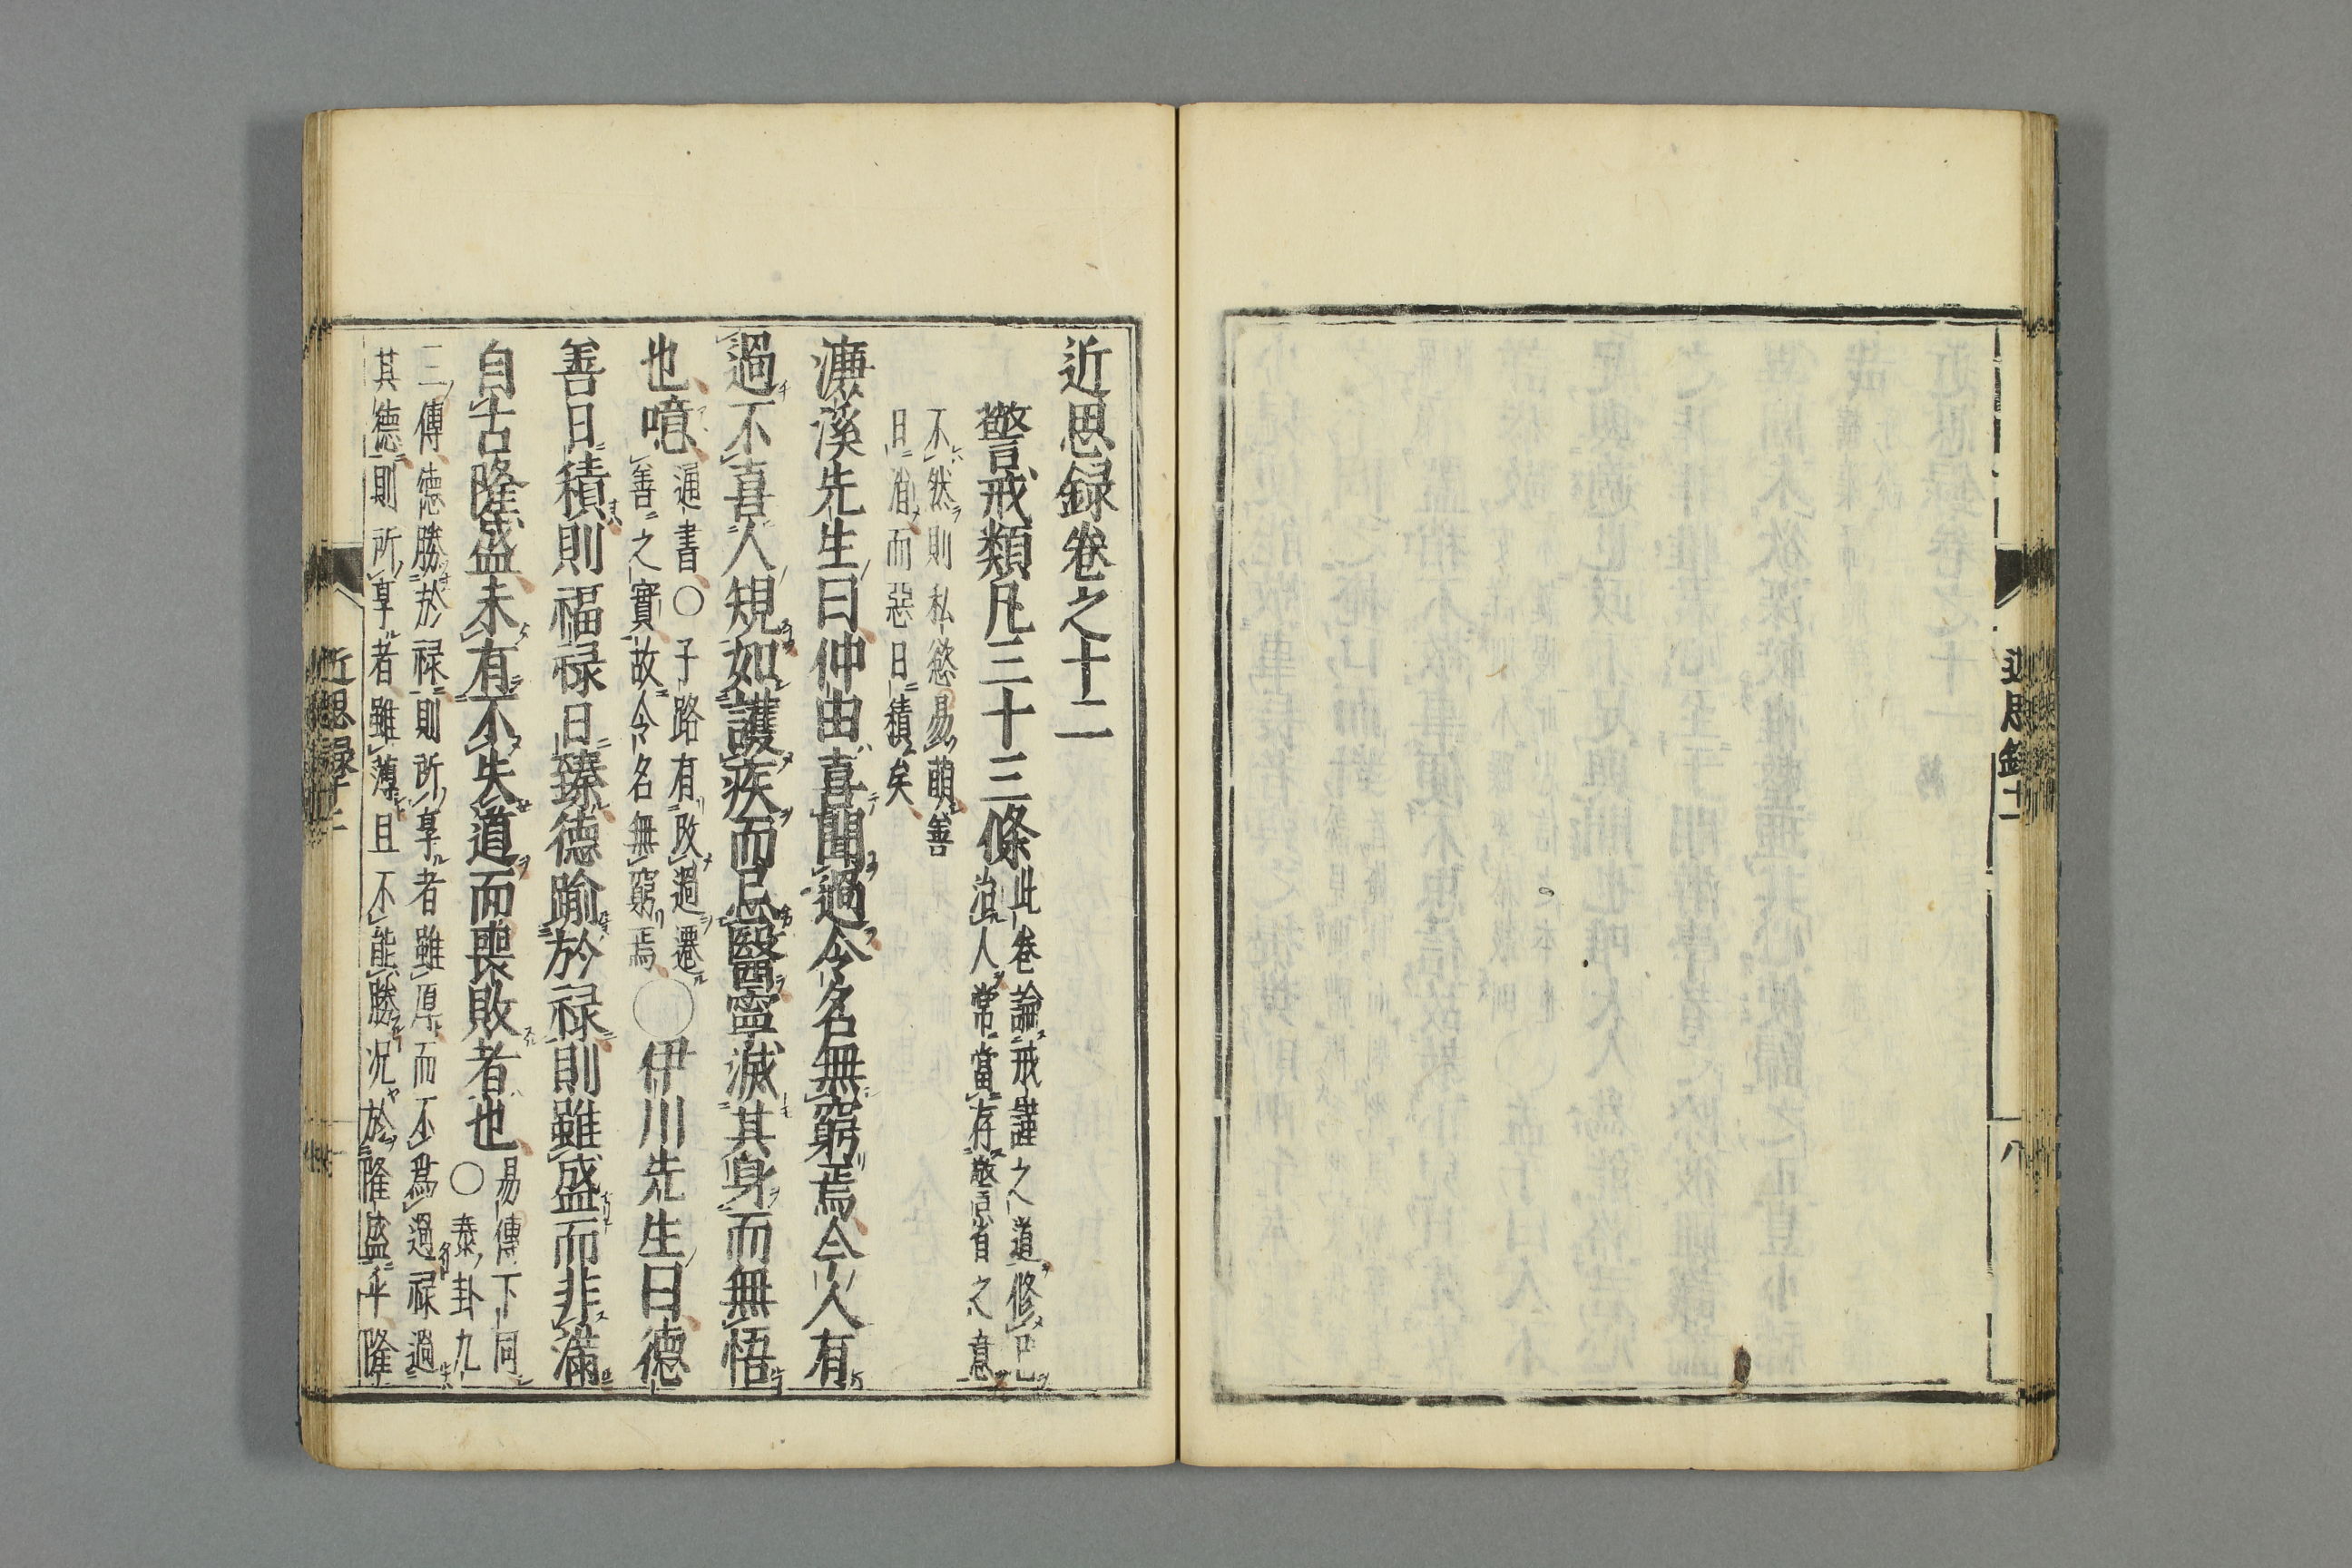 近思録卷之十二
警戒類凡三十三條
此卷論戒謹之道修己
治人常當存警省之意
不然則私慾易萌善
日消而惡日積矣
濂溪先生曰仲由喜聞過令名無窮焉今人有
過不喜人規如護疾而忌醫寧滅其身而無悟
也噫
通書○子路有改過遷
善之實故令名無窮焉
○伊川先生曰德
善日積則福禄日臻德踰於禄則雖盛而非滿
自古隆盛未有不失道而喪敗者也
易傳下同
○泰卦九
三傳德勝於禄則所享者雖厚而不爲過禄過
其德則所享者雖薄且不能勝况於隆盛乎隆
近思録十二
近思錄十一
八